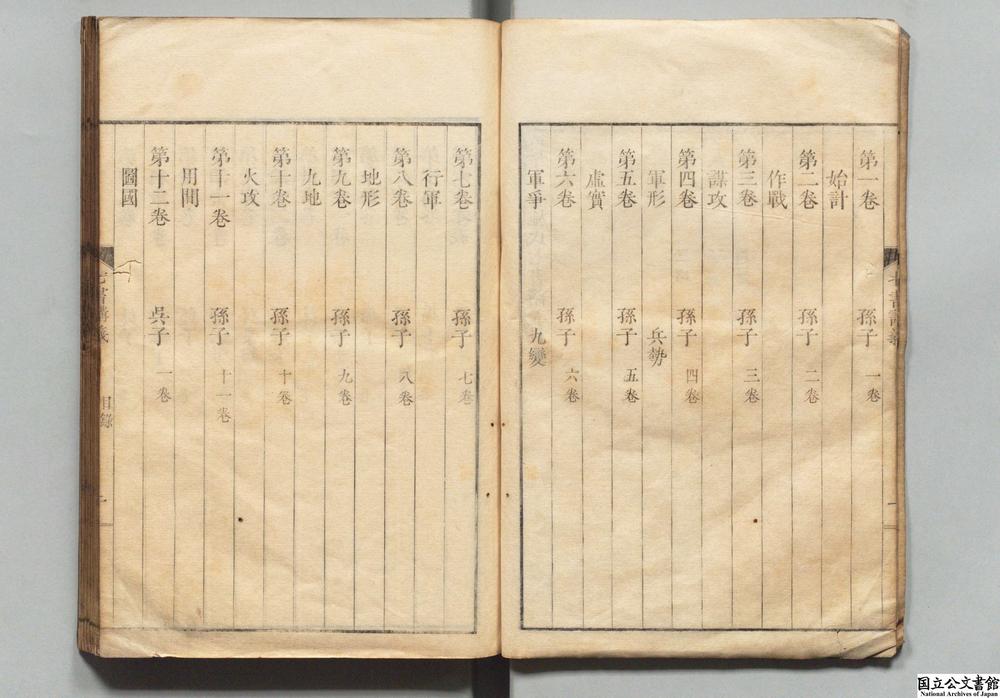 第一卷　孫子　一卷
始計
第二卷　孫子　二卷
作戰
第三卷　孫子　三卷
謀攻
第四卷　孫子　四卷
軍形　兵勢
第五卷　孫子　五卷
虛實
第六卷　孫子　六卷
軍爭　九變
第七卷　孫子　七卷
行軍
第八卷　孫子　八卷
地形
第九卷　孫子　九卷
九地
第十卷　孫子　十卷
火攻
第十一卷　孫子　十一卷
用間
第十二卷　吳子　一卷
圖國
七書講義　目錄　一
国立公文書館
National Archives of Japan